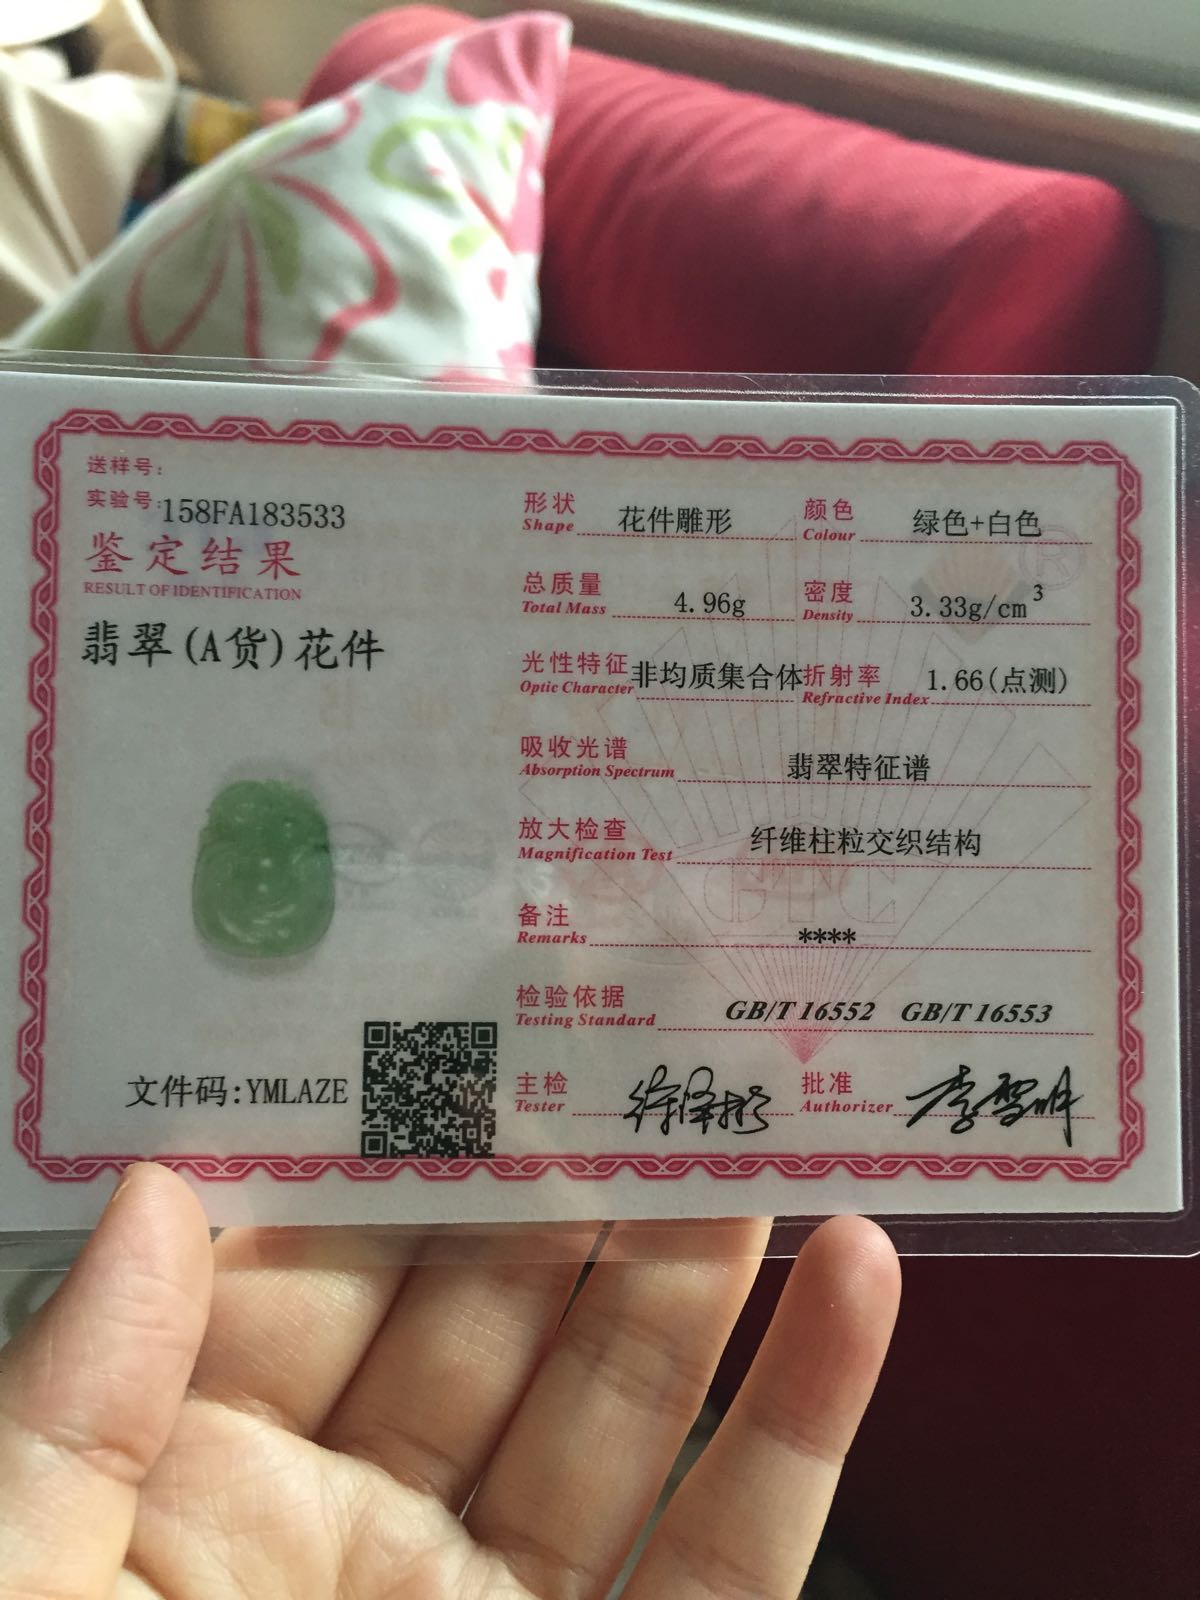 送样号:
实验号:158FA183533
鉴定结果
RESULT OF IDENTIFICATION
翡翠(A货)花件
文件码:YMLAZE
形状 花件雕形 颜色 绿色+白色
Shape Colour
总质量 4.96g 密度 3.33g/cm³
Total Mass Density
光性特征 非均质集合体 折射率 1.66(点测)
Optic Character Refractive Index
吸收光谱 翡翠特征谱
Absorption Spectrum
放大检查 纤维柱粒交织结构
Magnification Test
GTC
备注 ****
Remarks
检验依据 GB/T 16552 GB/T 16553
Testing Standard
主检 批准 李雪明
Tester Authorizer
®